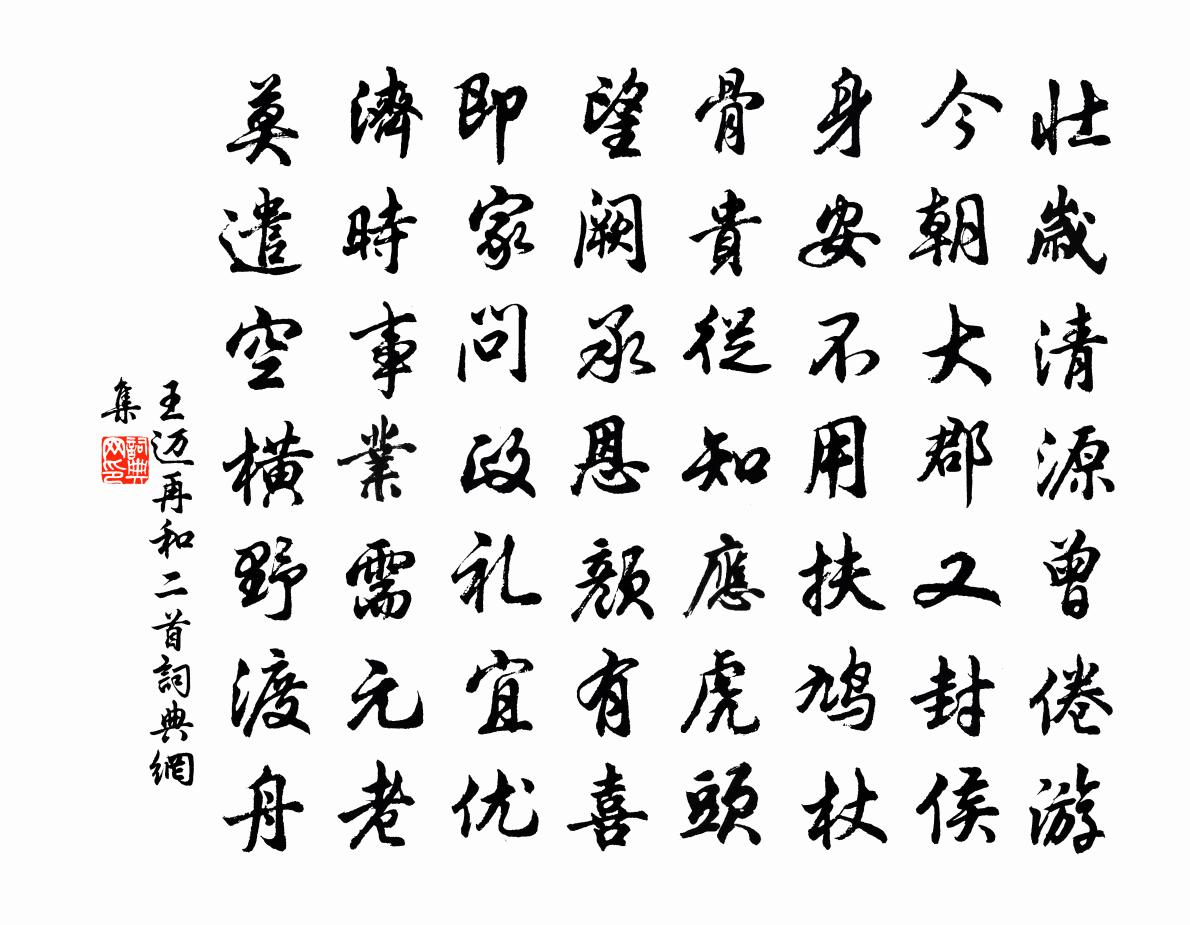 壮歳清源曾倦游
今朝大郡又封侯
身安不用扶鸠杖
骨貴従知應虎頭
望阙承恩顔有喜
即家問政礼宜优
濟時事業需元老
莫遣空横野渡舟
王迈再和二首詞典網
集
詞典网印